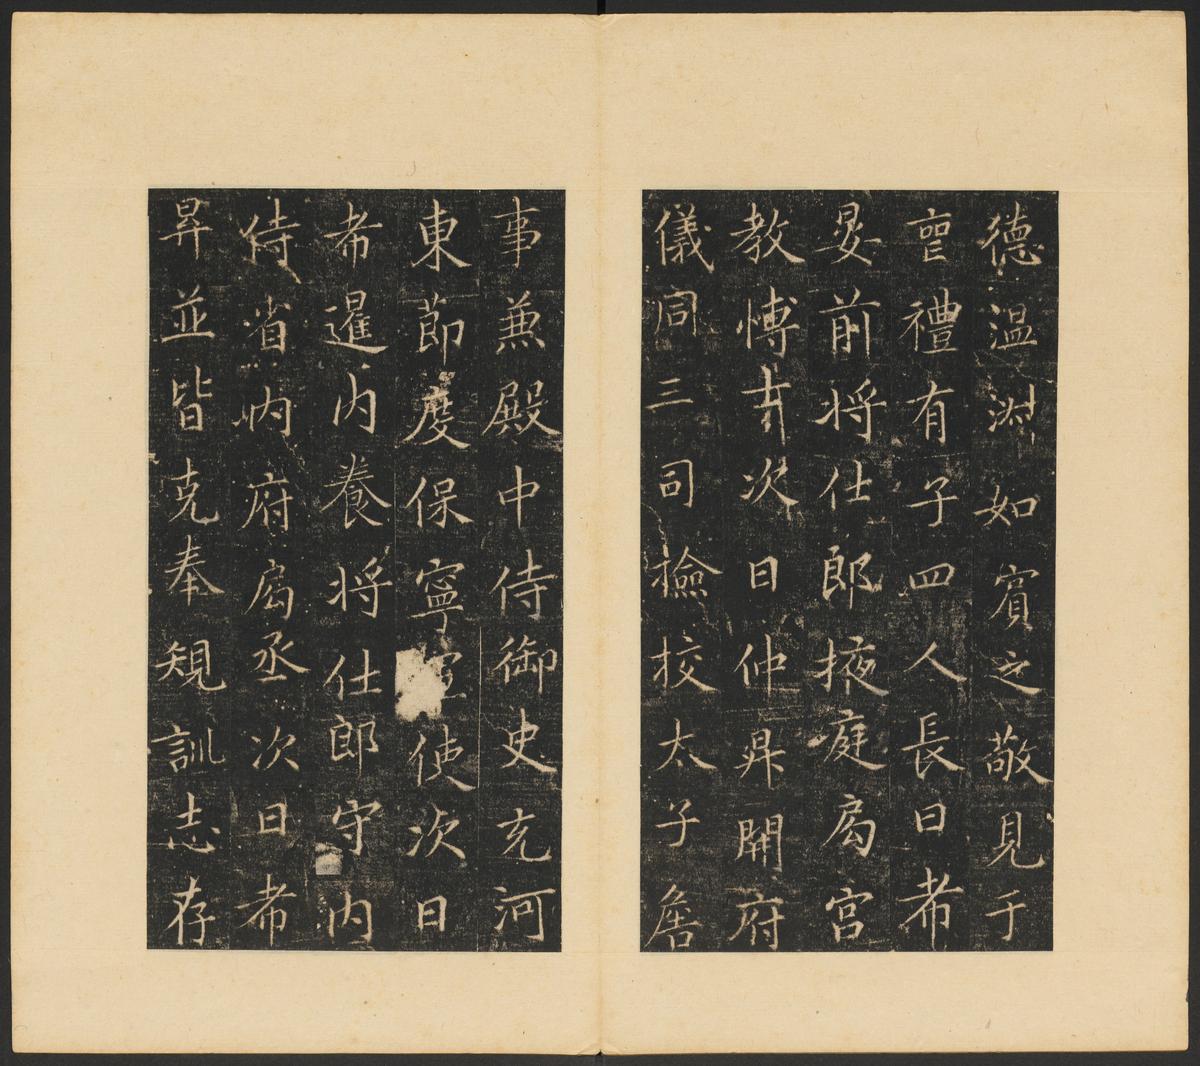 德温渊如賓之敬見于
亯禮有子四人長曰希
晏前将仕郎掖庭局宫
教愽士次曰仲昇開府
儀同三司撿挍太子詹
事兼殿中侍御史充河
東節度保寧軍使次曰
希暹内養将仕郎守内
侍省内府局丞次曰希
昇並皆克奉規訓志存